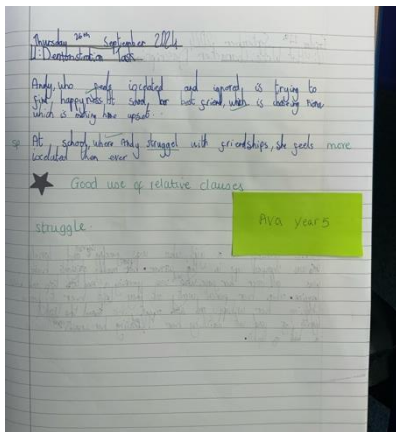 Thursday 26th September 2024
L.I: Demonstration task
Andy, who feels and ignored is trying to
find happyness at school, her best friend, which is
which is making here upset.
sp At school, where Andy struggel with friendships, she feels more
than ever
Good use of relative clauses
struggle.
Ava Year 5